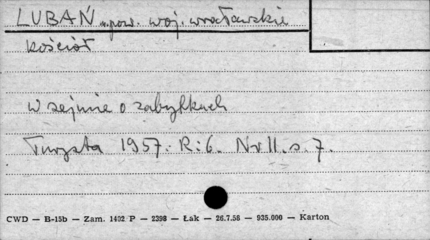 LUBAŃ pow. woj. wrocławskie
kościół
w sejmie o zabytkach
Turysta 1957. R:6. Nr 11. s. 7.
CWD — B-15b — Zam. 1402 P — 2398 — Łak — 26.7.56 — 935.000 — Karton